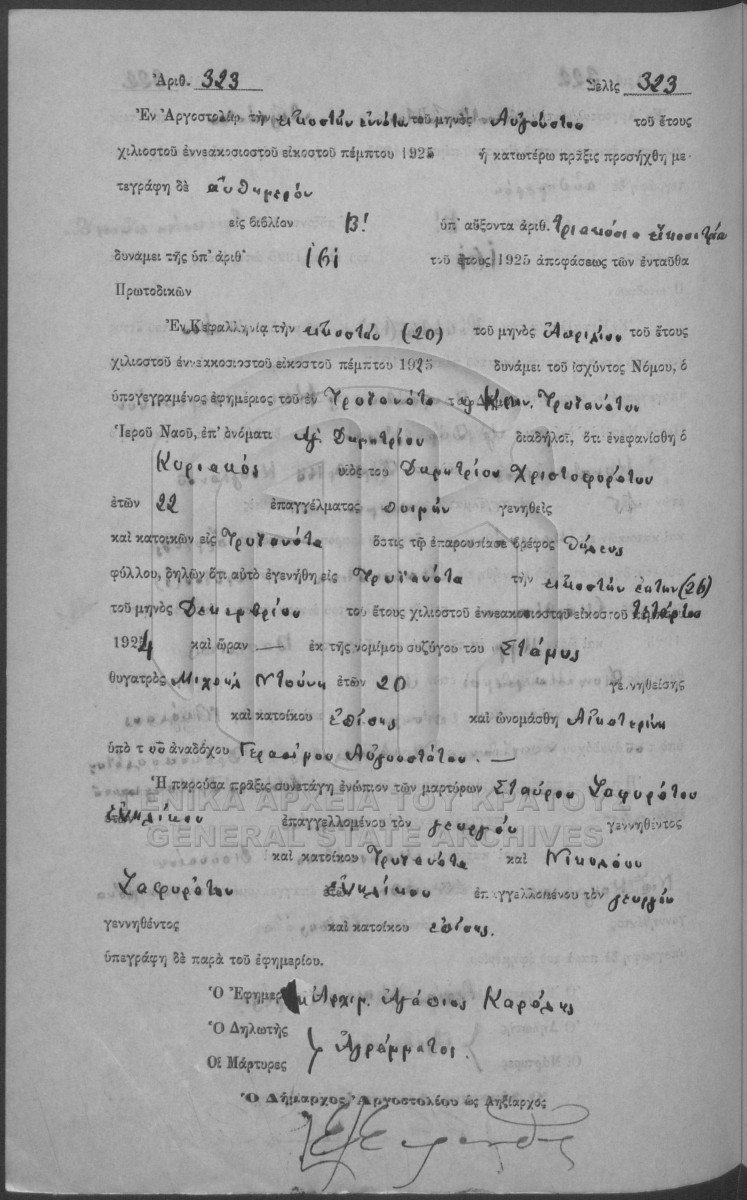 Ἀριθ. 323 Σελὶς 323
Ἐν Ἀργοστολίῳ τὴν εἰκοστὴν ἐννάτη τοῦ μηνὸς Αὐγούστου τοῦ ἔτους
χιλιοστοῦ ἐννεακοσιοστοῦ εἰκοστοῦ πέμπτου 1925 ἡ κατωτέρω πρᾶξις προσήχθη με-
τεγράφη δὲ αὐθημερὸν
εἰς βιβλίον Β! ὑπ' αὔξοντα ἀριθ. τριακόσια εἴκοσι τρία
δυνάμει τῆς ὑπ' ἀριθ 161 τοῦ ἔτους 1925 ἀποφάσεως τῶν ἐνταῦθα
Πρωτοδικῶν
Ἐν Κεφαλληνίᾳ τὴν εἰκοστὴν (20) τοῦ μηνὸς Ἀπριλίου τοῦ ἔτους
χιλιοστοῦ ἐννεακοσιοστοῦ εἰκοστοῦ πέμπτου 1925 δυνάμει τοῦ ἰσχύντος Νόμου, ὁ
ὑπογεγραμένος ἐφημέριος τοῦ ἐν Τρωϊανάτα τοῦ Κοιν. Τρωϊανάτων
Ἱεροῦ Ναοῦ, ἐπ' ὀνόματι Ἁγ. Δημητρίου διαδηλοῖ, ὅτι ἐνεφανίσθη ὁ
Κυριακὸς υἱὸς του Δημητρίου Χριστοφοράτου
ἐτῶν 22 ἐπαγγέλματος ποιμὴν γενηθεὶς
καὶ κατοικῶν εἰς Τρωϊανάτα ὅστις τῷ ἐπαρουσίασε βρέφος θήλεως
φύλλου, δηλῶν ὅτι αὐτὸ ἐγενήθη εἰς Τρωϊανάτα τὴν εἰκοστὴν ἕκτην (26)
τοῦ μηνὸς Δεκεμβρίου τοῦ ἔτους χιλιοστοῦ ἐννεακοσιοστοῦ εἰκοστοῦ τετάρτου
1924 καὶ ὥραν — ἐκ τῆς νομίμου συζύγου του Στάμως
θυγατρὸς Μιχαὴλ Ντούνη ἐτῶν 20 γεννηθείσης
καὶ κατοίκου ἐπίσης καὶ ὠνομάσθη Αἰκατερίνη
ὑπὸ τοῦ ἀναδόχου Γερασίμου Αὐγουστάτου. —
Ἡ παροῦσα πρᾶξις συνετάγη ἐνώπιον τῶν μαρτύρων Σταύρου Ζαφυράτου
ἐνηλίκου ἐπαγγελλομένου τὸν γεωργὸν γεννηθέντος
καὶ κατοίκου Τρωϊανάτα καὶ Νικολάου
Ζαφυράτου ἐνηλίκου ἐπαγγελλομένου τὸν γεωργὸν
γεννηθέντος καὶ κατοίκου ἐπίσης.
ὑπεγράφη δὲ παρὰ τοῦ ἐφημερίου.
Ὁ Ἐφημέριος Ἀρχιμ. Ἀγάπιος Καρόλης
Ὁ Δηλωτὴς
Οἱ Μάρτυρες } Ἀγράμματοι.
Ὁ Δήμαρχος Ἀργοστολίου ὡς Ληξίαρχος
ΓΕΝΙΚΑ ΑΡΧΕΙΑ ΤΟΥ ΚΡΑΤΟΥΣ
GENERAL STATE ARCHIVES